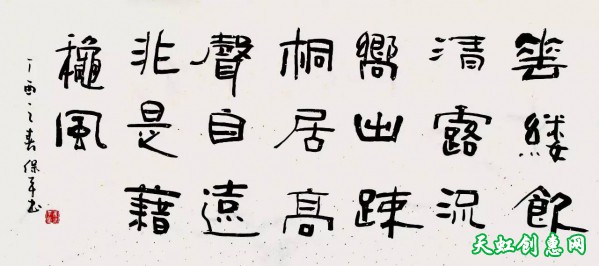 垂緌飲
清露流
響出踈
桐居高
聲自遠
非是藉
龝風
丁酉之春保平书
天虹创意网